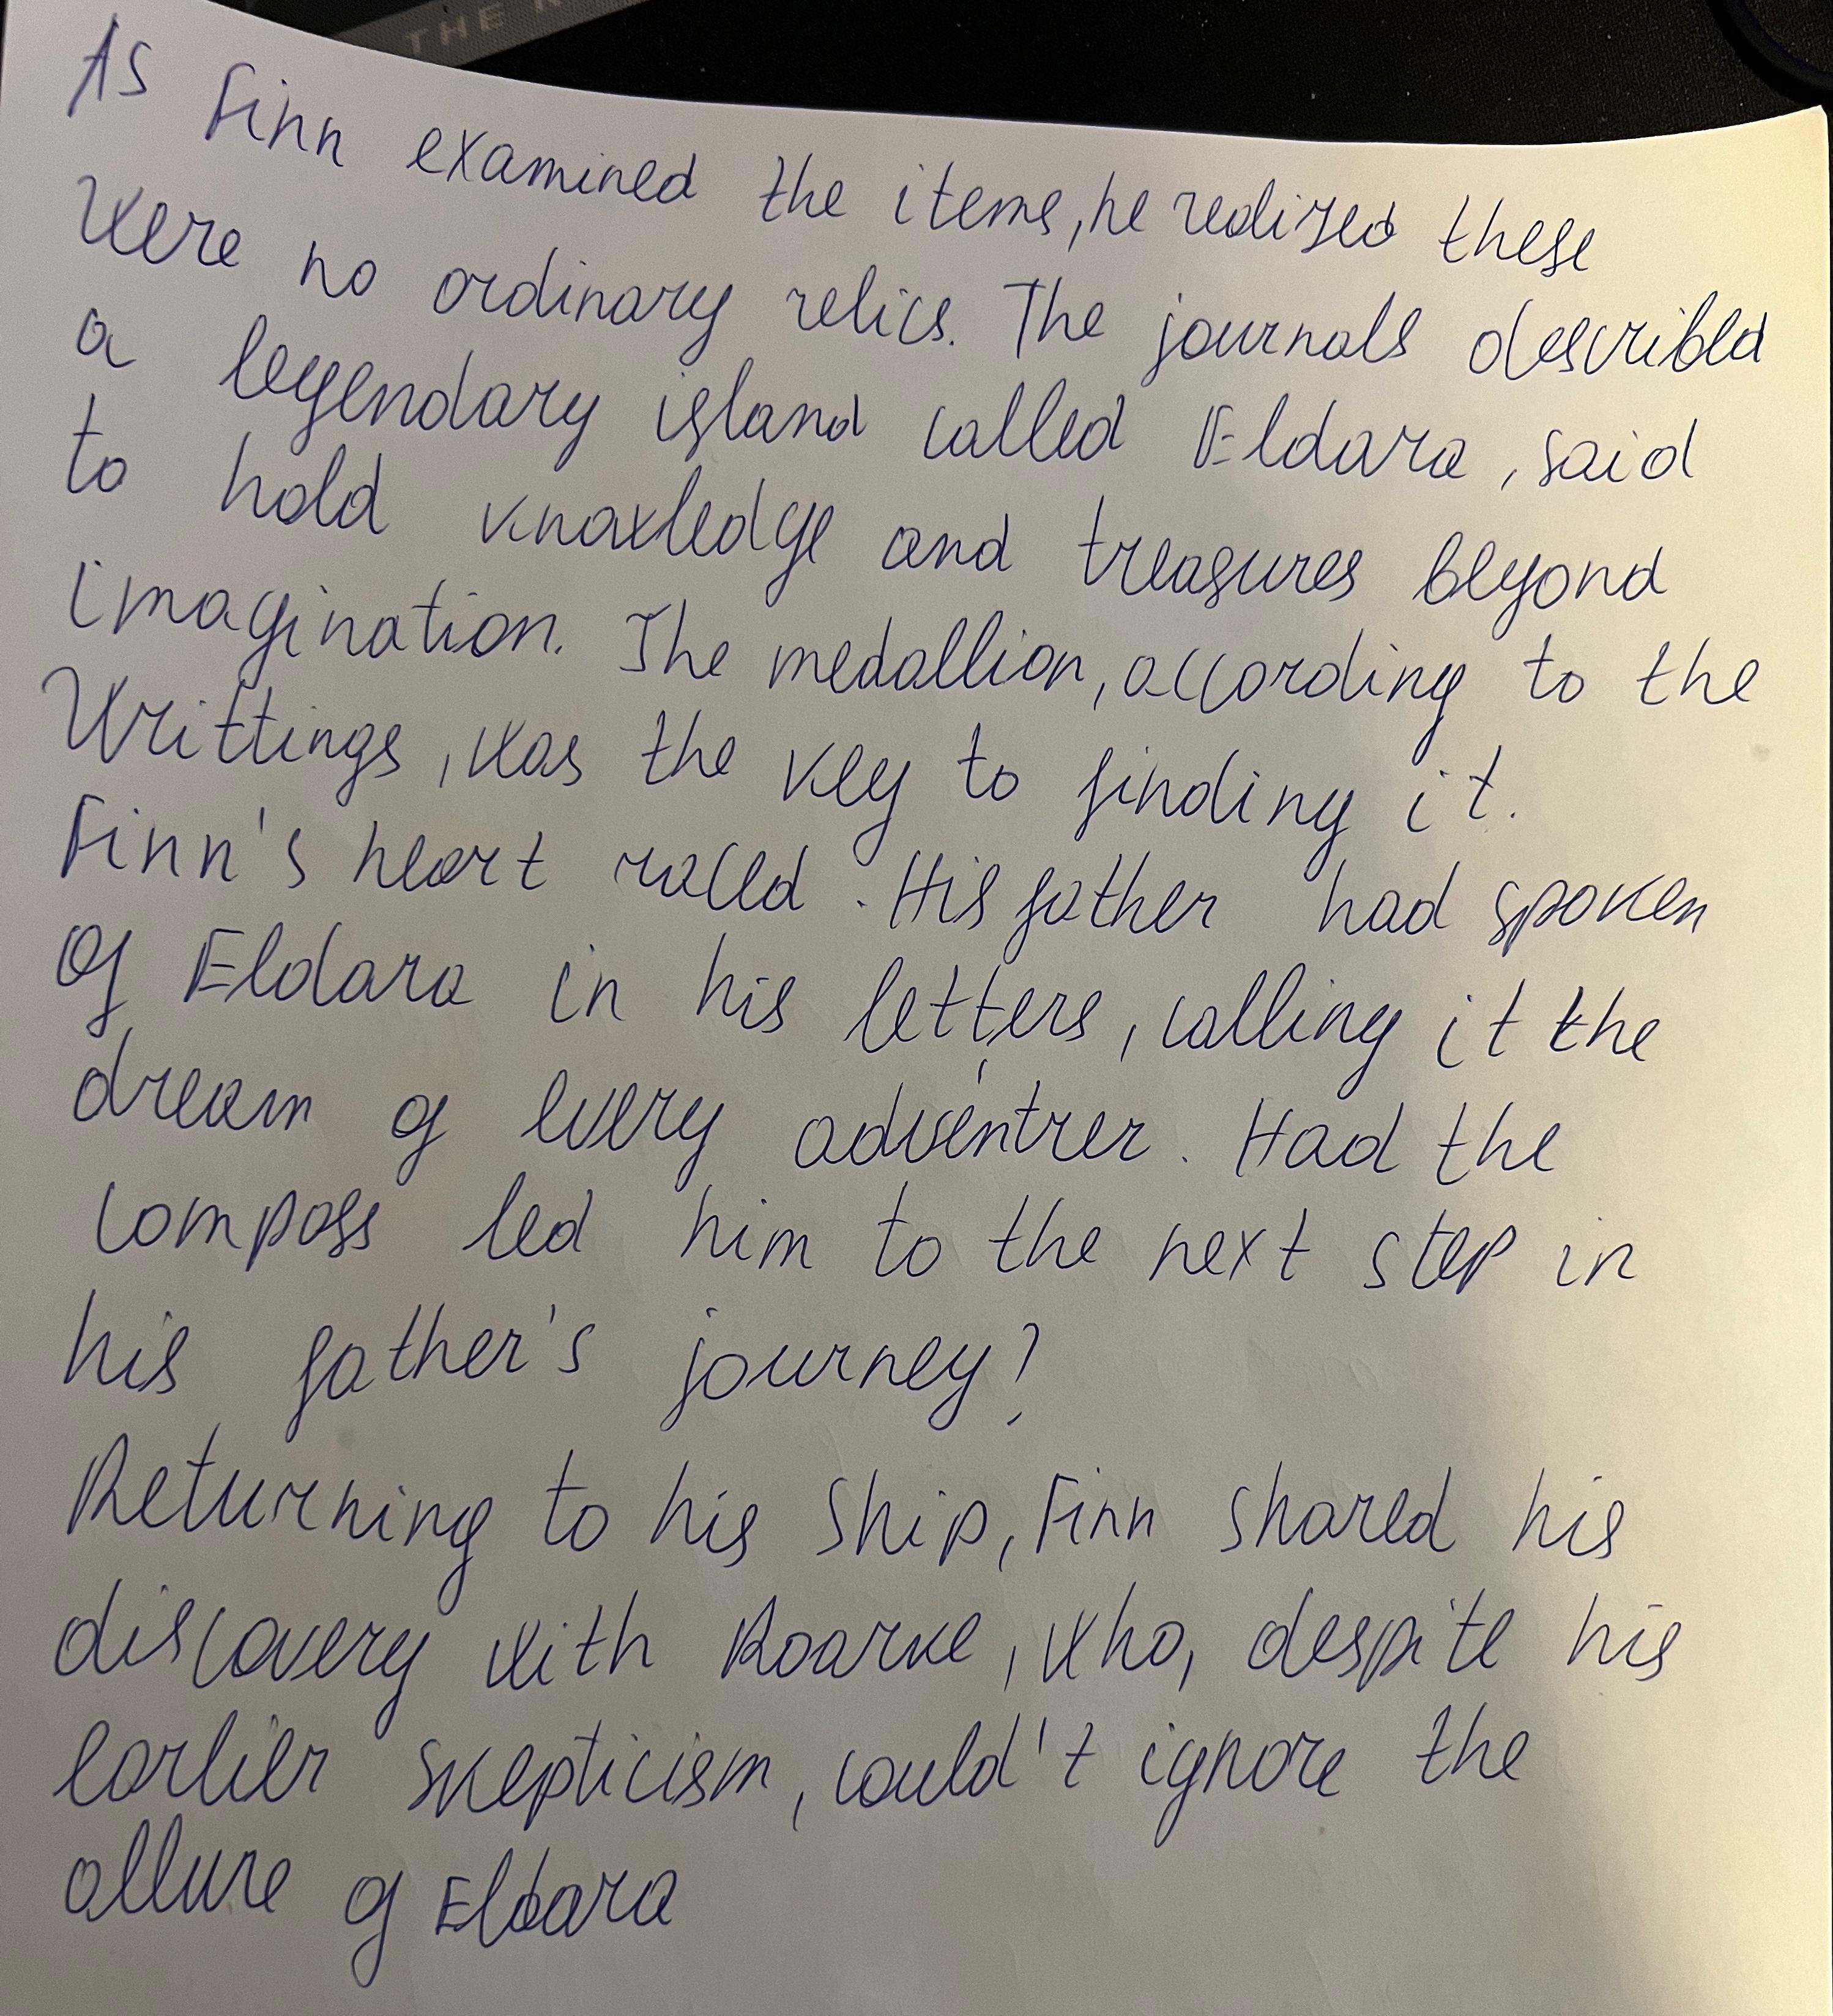 THE
As Finn examined the items, he realized these
Were no ordinary relics. The journals described
a legendary island called Eldara, said
to hold knowledge and treasures beyond
imagination. The medallion, according to the
Writtings, was the key to finding it.
Finn's heart raced. His father had spoken
of Eldara in his letters, calling it the
dream of every adventrer. Had the
compass led him to the next step in
his father's journey?
Returning to his ship, Finn shared his
discovery with Roarke, who, despite his
earlier skepticism, could't ignore the
allure of Eldara